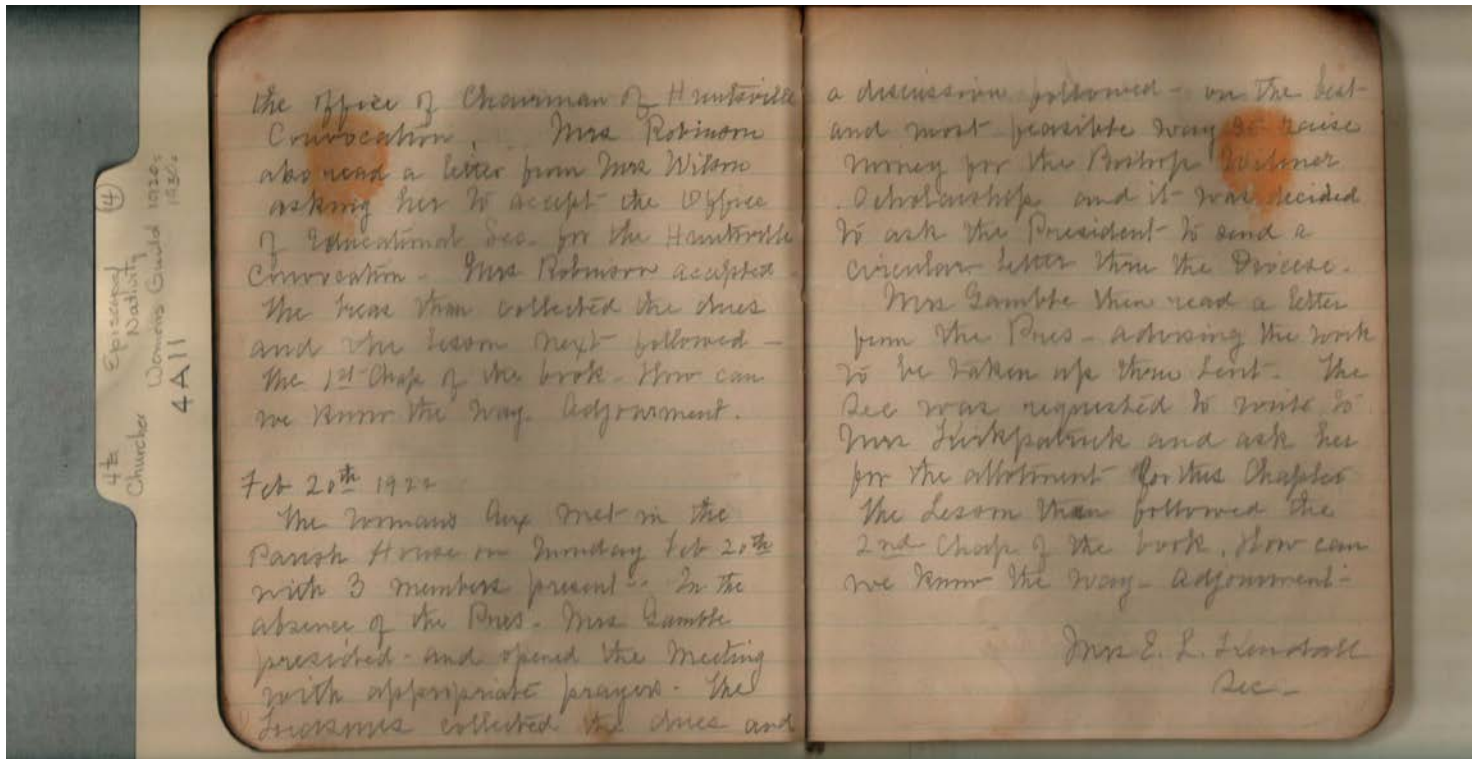 4th Episcopal ④
Churches Nativity
Womens Guild 1920s
1930s
4A11
the office of Chairman of Huntsville
Convocation. Mrs Robinson
also read a letter from Mrs Wilson
asking her to accept the Office
of Educational Sec. for the Huntsville
Convocation - Mrs Robinson accepted.
The treas then collected the dues
and the lesson next followed -
the 1st Chap of the book - How can
we know the Way. Adjournment.
Feb 20th 1922
The Womans Aux met in the
Parish House on Monday Feb 20th
with 3 members present - In the
absence of the Pres - Mrs Gamble
presided - and opened the Meeting
with appropriate prayers - The
collected the dues and
a discussion followed - on the best
and most feasible way to raise
money for the Bishop Wilmer
Scholarship and it was decided
to ask the President to send a
circular letter thru the Diocese.
Mrs Gamble then read a letter
from the Pres - advising the work
to be taken up thru Lent. The
Sec was requested to write to
Mrs Kirkpatrick and ask her
for the allotment for this Chapter
The Lesson then followed the
2nd Chap of the book. How can
we know the way - adjournment -
Mrs E. L.
Sec -